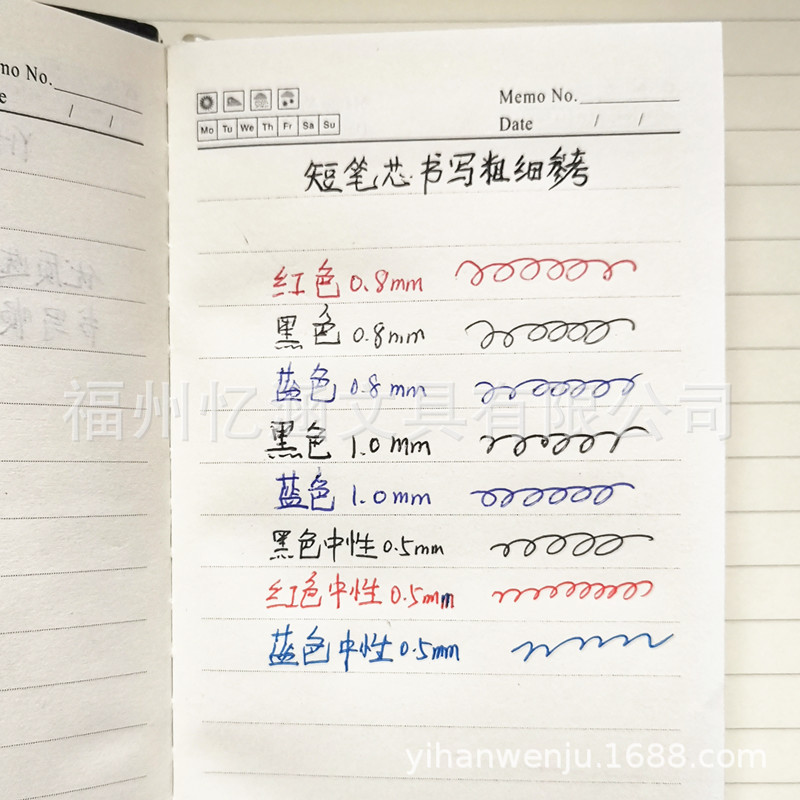 Memo No.
Date / /
Mo Tu We Th Fr Sa Su
短笔芯书写粗细参考
红色 0.8mm
黑色 0.8mm
蓝色 0.8mm
黑色 1.0mm
蓝色 1.0mm
黑色中性 0.5mm
红色中性 0.5mm
蓝色中性 0.5mm
no No.
/ /
yihanwenju.1688.com